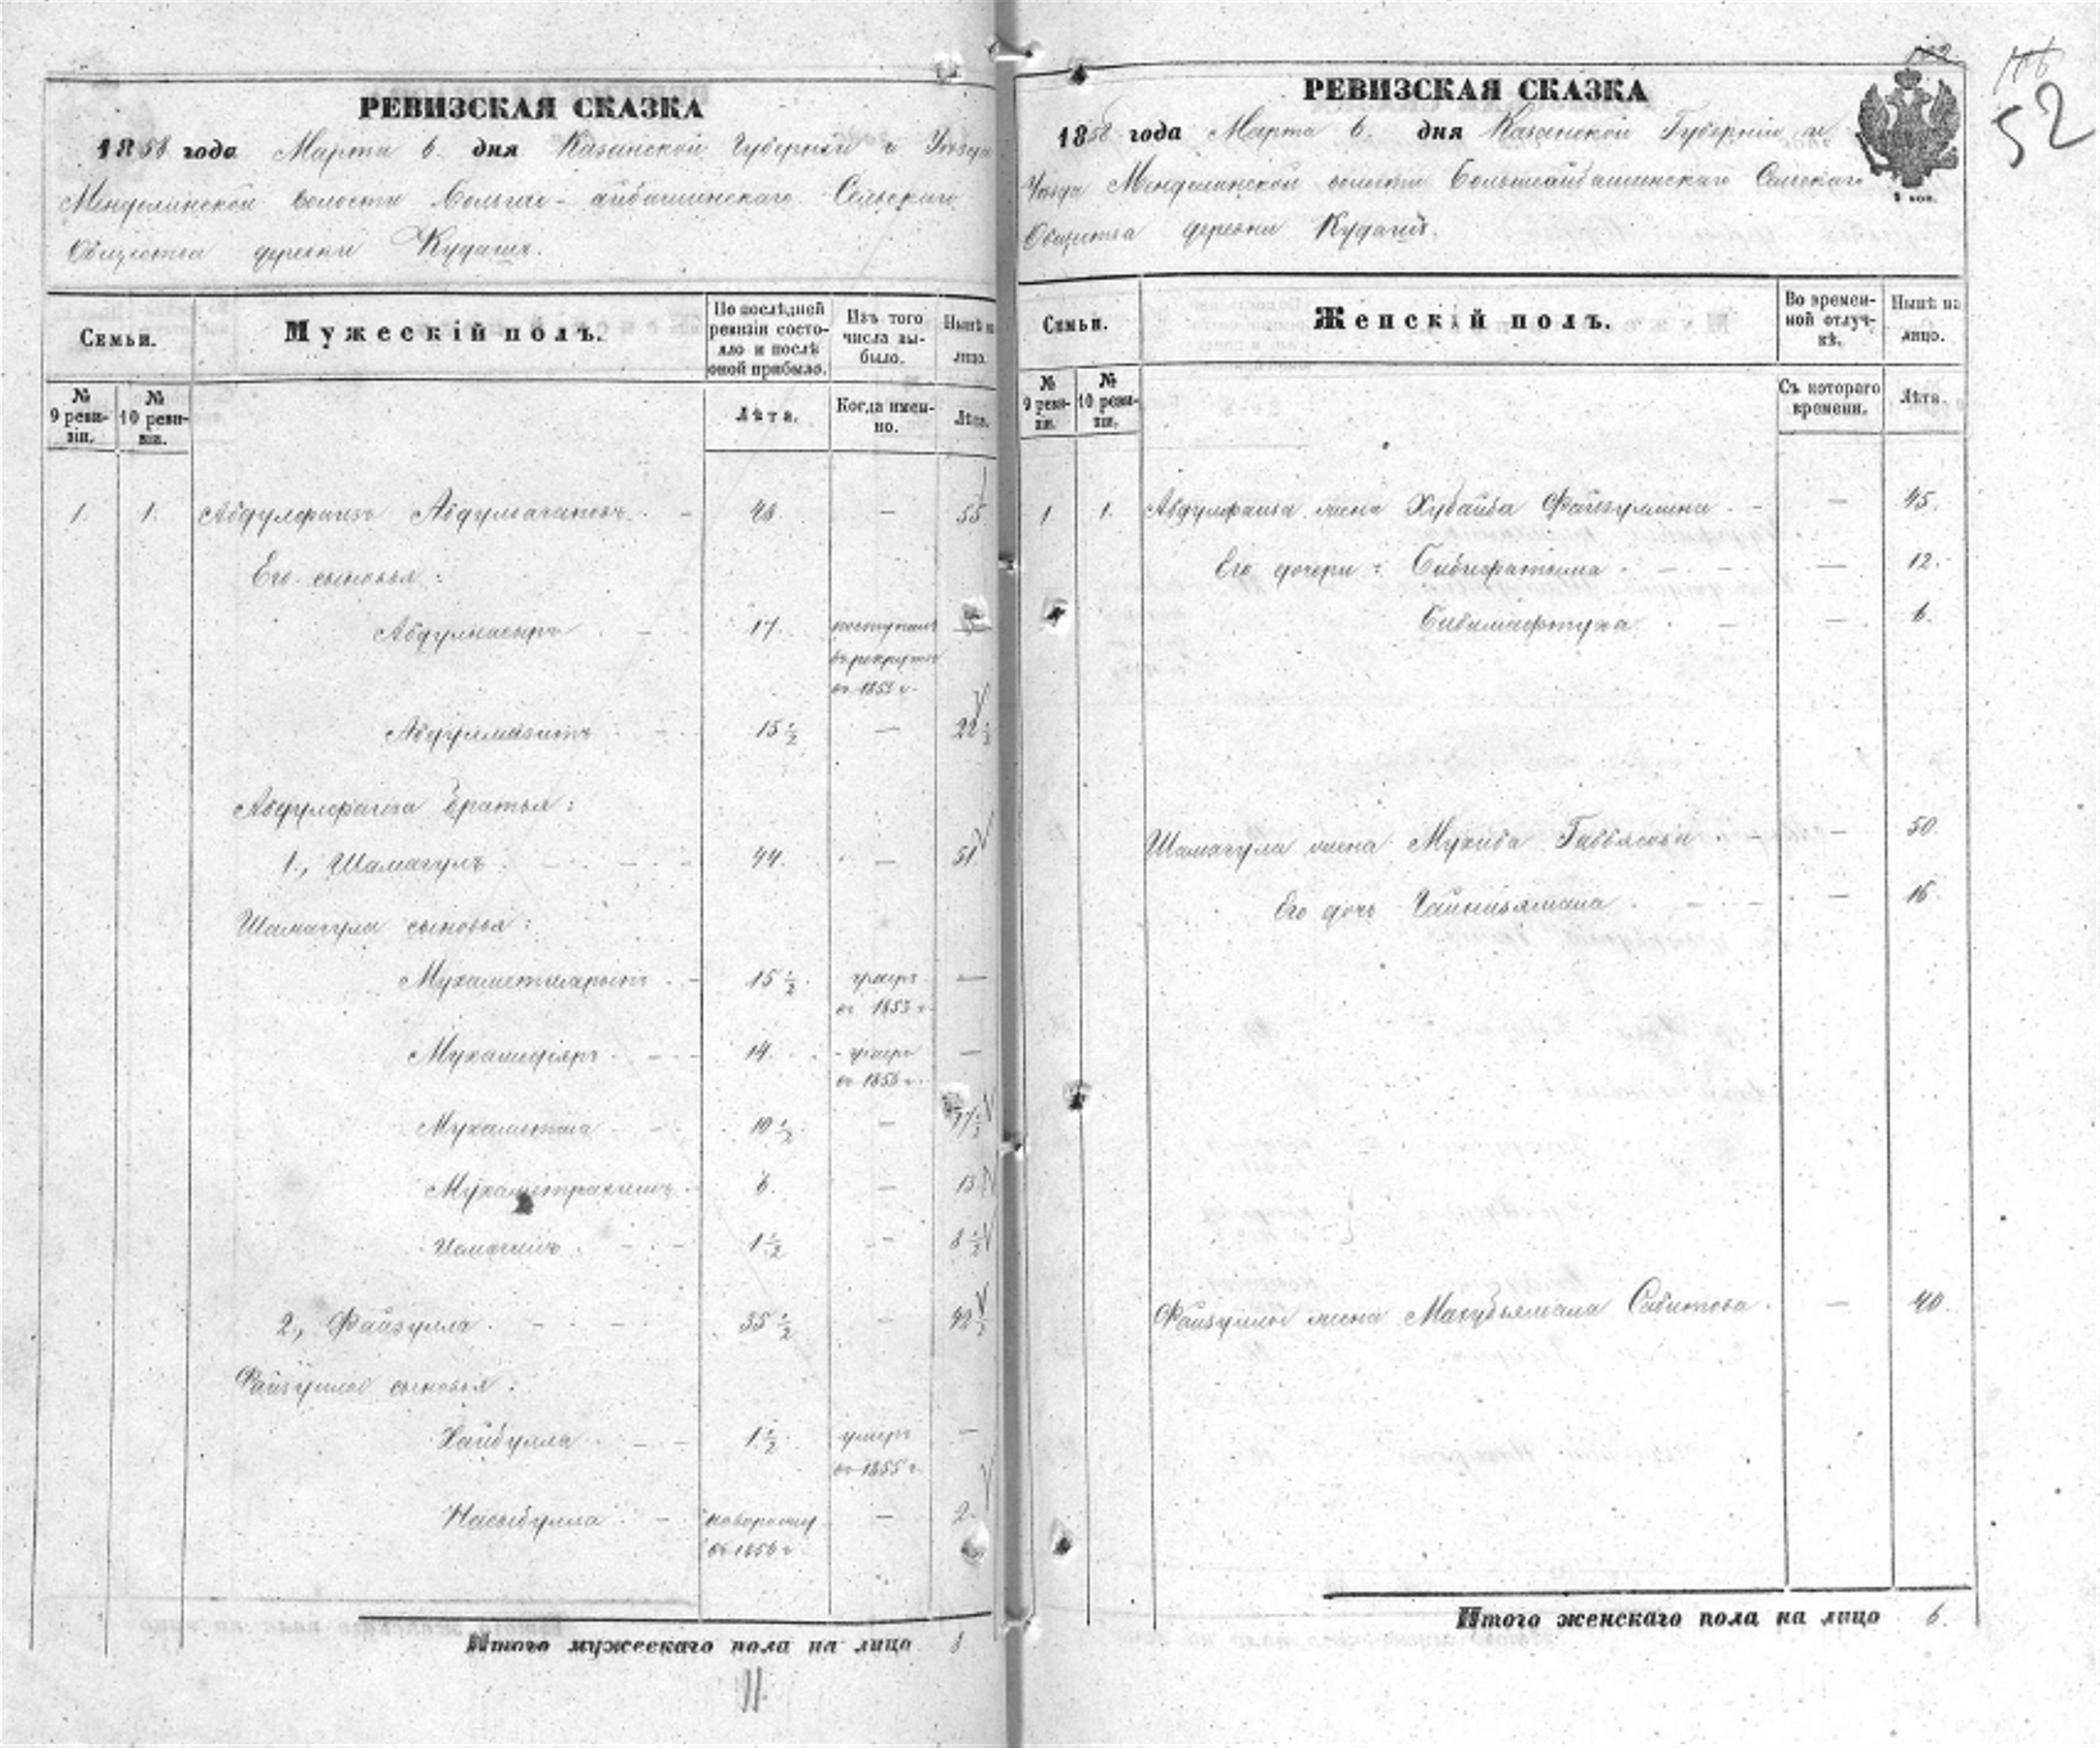 РЕВИЗСКАЯ СКАЗКА
1858 года Марта 6. дня Казанской Губерніи и Уѣзда
Менделинской волости Больше-айбашинскаго Сельскаго
Общества деревни Кудашъ.
Семьи.
Мужескій полъ.
По послѣдней ревизіи состояло и послѣ оной прибыло.
Изъ того числа выбыло.
Нынѣ на лицо.
№ 9 ревизіи.
№ 10 ревизіи.
Лѣта.
Когда именно.
Лѣта.
1. 1. Абдулфаизъ 48. — 55
Его сыновья:
Абдулнасыръ 17. поступилъ —
въ рекруты
въ 185 г.
15 1/2 — 22 1/2
братья:
1., Шамагулъ 44. — 51
Шамагула сыновья:
15 1/2 умеръ —
въ 1853 г.
Мухамедіяръ 14. умеръ —
въ 1856 г.
10 1/2 — 17 1/2
Мухаметрахимъ 6. — 13
1 1/2 — 8 1/2
2., Файзулла 35 1/2 — 42 1/2
Файзуллы сыновья:
Хайбулла 1 1/2 умеръ —
въ 1855 г.
Насыбулла новорожд — 2.
въ 1856 г.
Итого мужескаго пола на лицо 8
11.
102
106
52
РЕВИЗСКАЯ СКАЗКА
1858 года Марта 6. дня Казанской Губерніи и
Уѣзда Менделинской волости Большеайбашинскаго Сельскаго
Общества деревни Кудашъ.
Семьи.
Женскій полъ.
Во временной отлучкѣ.
Нынѣ на лицо.
№ 9 ревизіи.
№ 10 ревизіи.
Съ котораго времени.
Лѣта.
1 1. Абдулфаиза жена Хубайба Файзуллина — 45.
Его дочери: Бибифатыма — 12.
Бибимафтуха — 6.
Шамагула жена — 50.
Его дочь — 16
Файзуллы жена Сабитова — 40.
Итого женскаго пола на лицо 6.